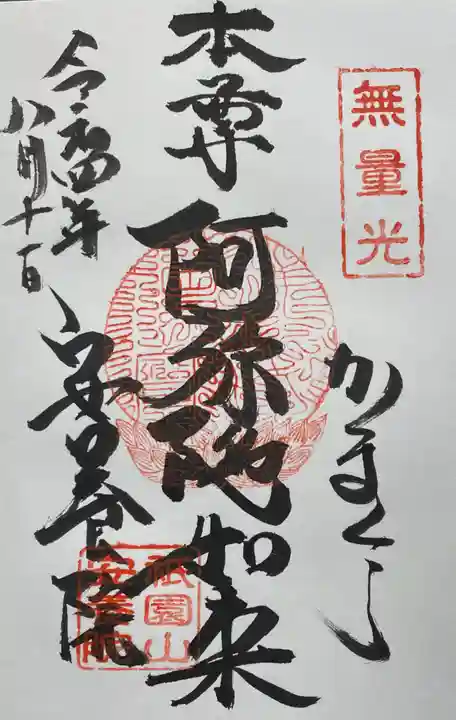 無量光
かまくら
本尊
阿弥陀如来
安養院
令和四年
八月十一日
祇園山
安養院